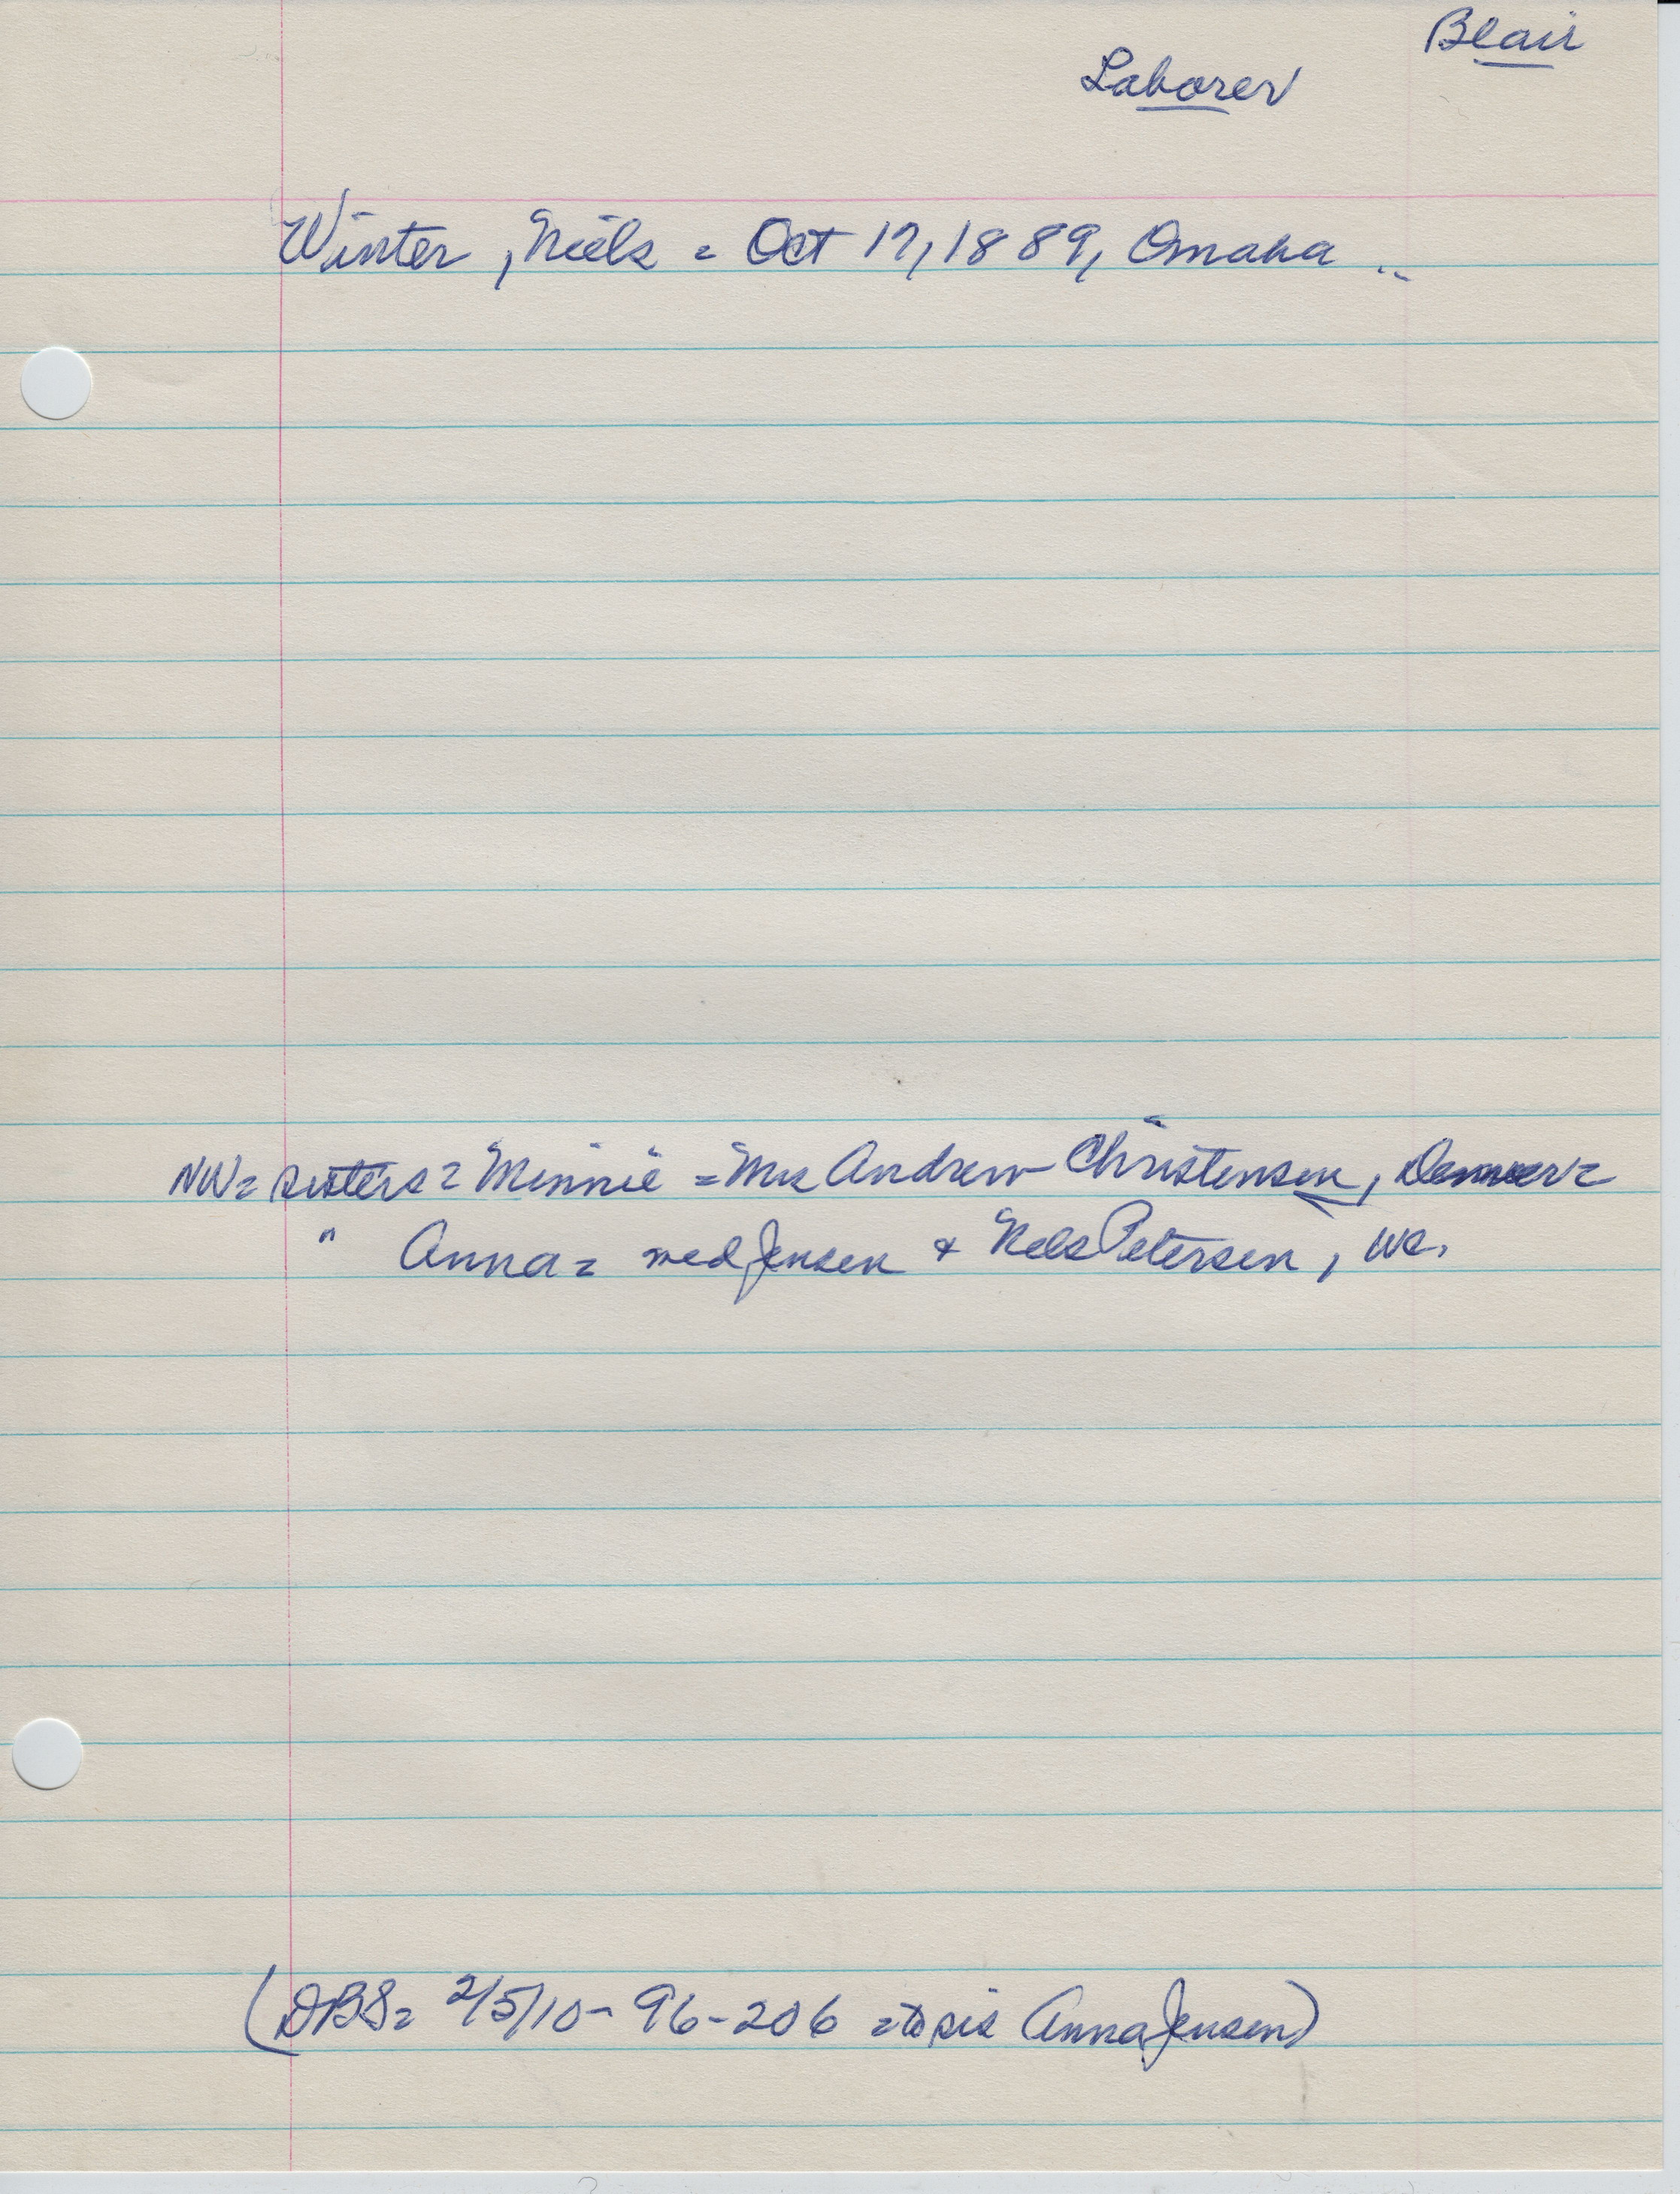 Blair
Laborer
Winter, Niels = Oct 17, 1889, Omaha
NW = sisters = Minnie = Mrs Andrew Christensen, Denver =
" Anna = wed Jensen & Nels Petersen, WC.
(DBS = 2/5/10 - 96-206 = to sis Anna Jensen)